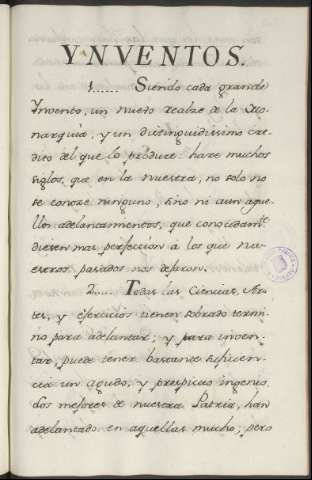 YNVENTOS.
1...... Siendo cada grande
Ynvento, un nuevo realze de la Mo
narquia, y un distinguidissimo cre
dito del que lo produce: hace muchos
siglos, que en la nuestra, no solo no
se conoze ninguno, sino ni aun aque
llos adelantamientos, que conocidamte
diesen mas perfeccion à los que nue
stros pasados nos dejaron.
2..... Todas las Ciencias, Ar
tes, y ejercicios tienen sobrado termi
no para adelantar; y para inven
tar, puede tener bastante suficien
cia un agudo, y prespicuo ingenio.
Los mejores de nuestra Patria, han
adelantado en aquellas mucho; pero